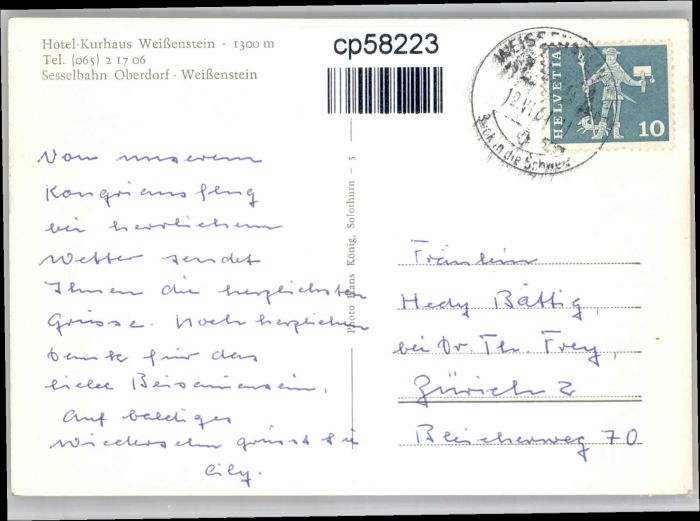 Hotel-Kurhaus Weißenstein - 1300 m
Tel. (065) 2 17 06
Sesselbahn Oberdorf - Weißenstein
cp58223
WEISSENSTEIN
12.VI
Blick in die Schweiz
HELVETIA
10
Photo Hans König, Solothurn - 5
Von unserem
bei herrlichem
Wetter sendet
Ihnen die herzlichsten
Grüsse. Noch herzlichen
Dank für das
liebe Beisammensein.
Auf baldiges
Wiedersehn grüsst Sie
Cily.
Fräulein
Hedy Bättig,
bei Dr. Th. Frey,
Zürich 2
Bleicherweg 70